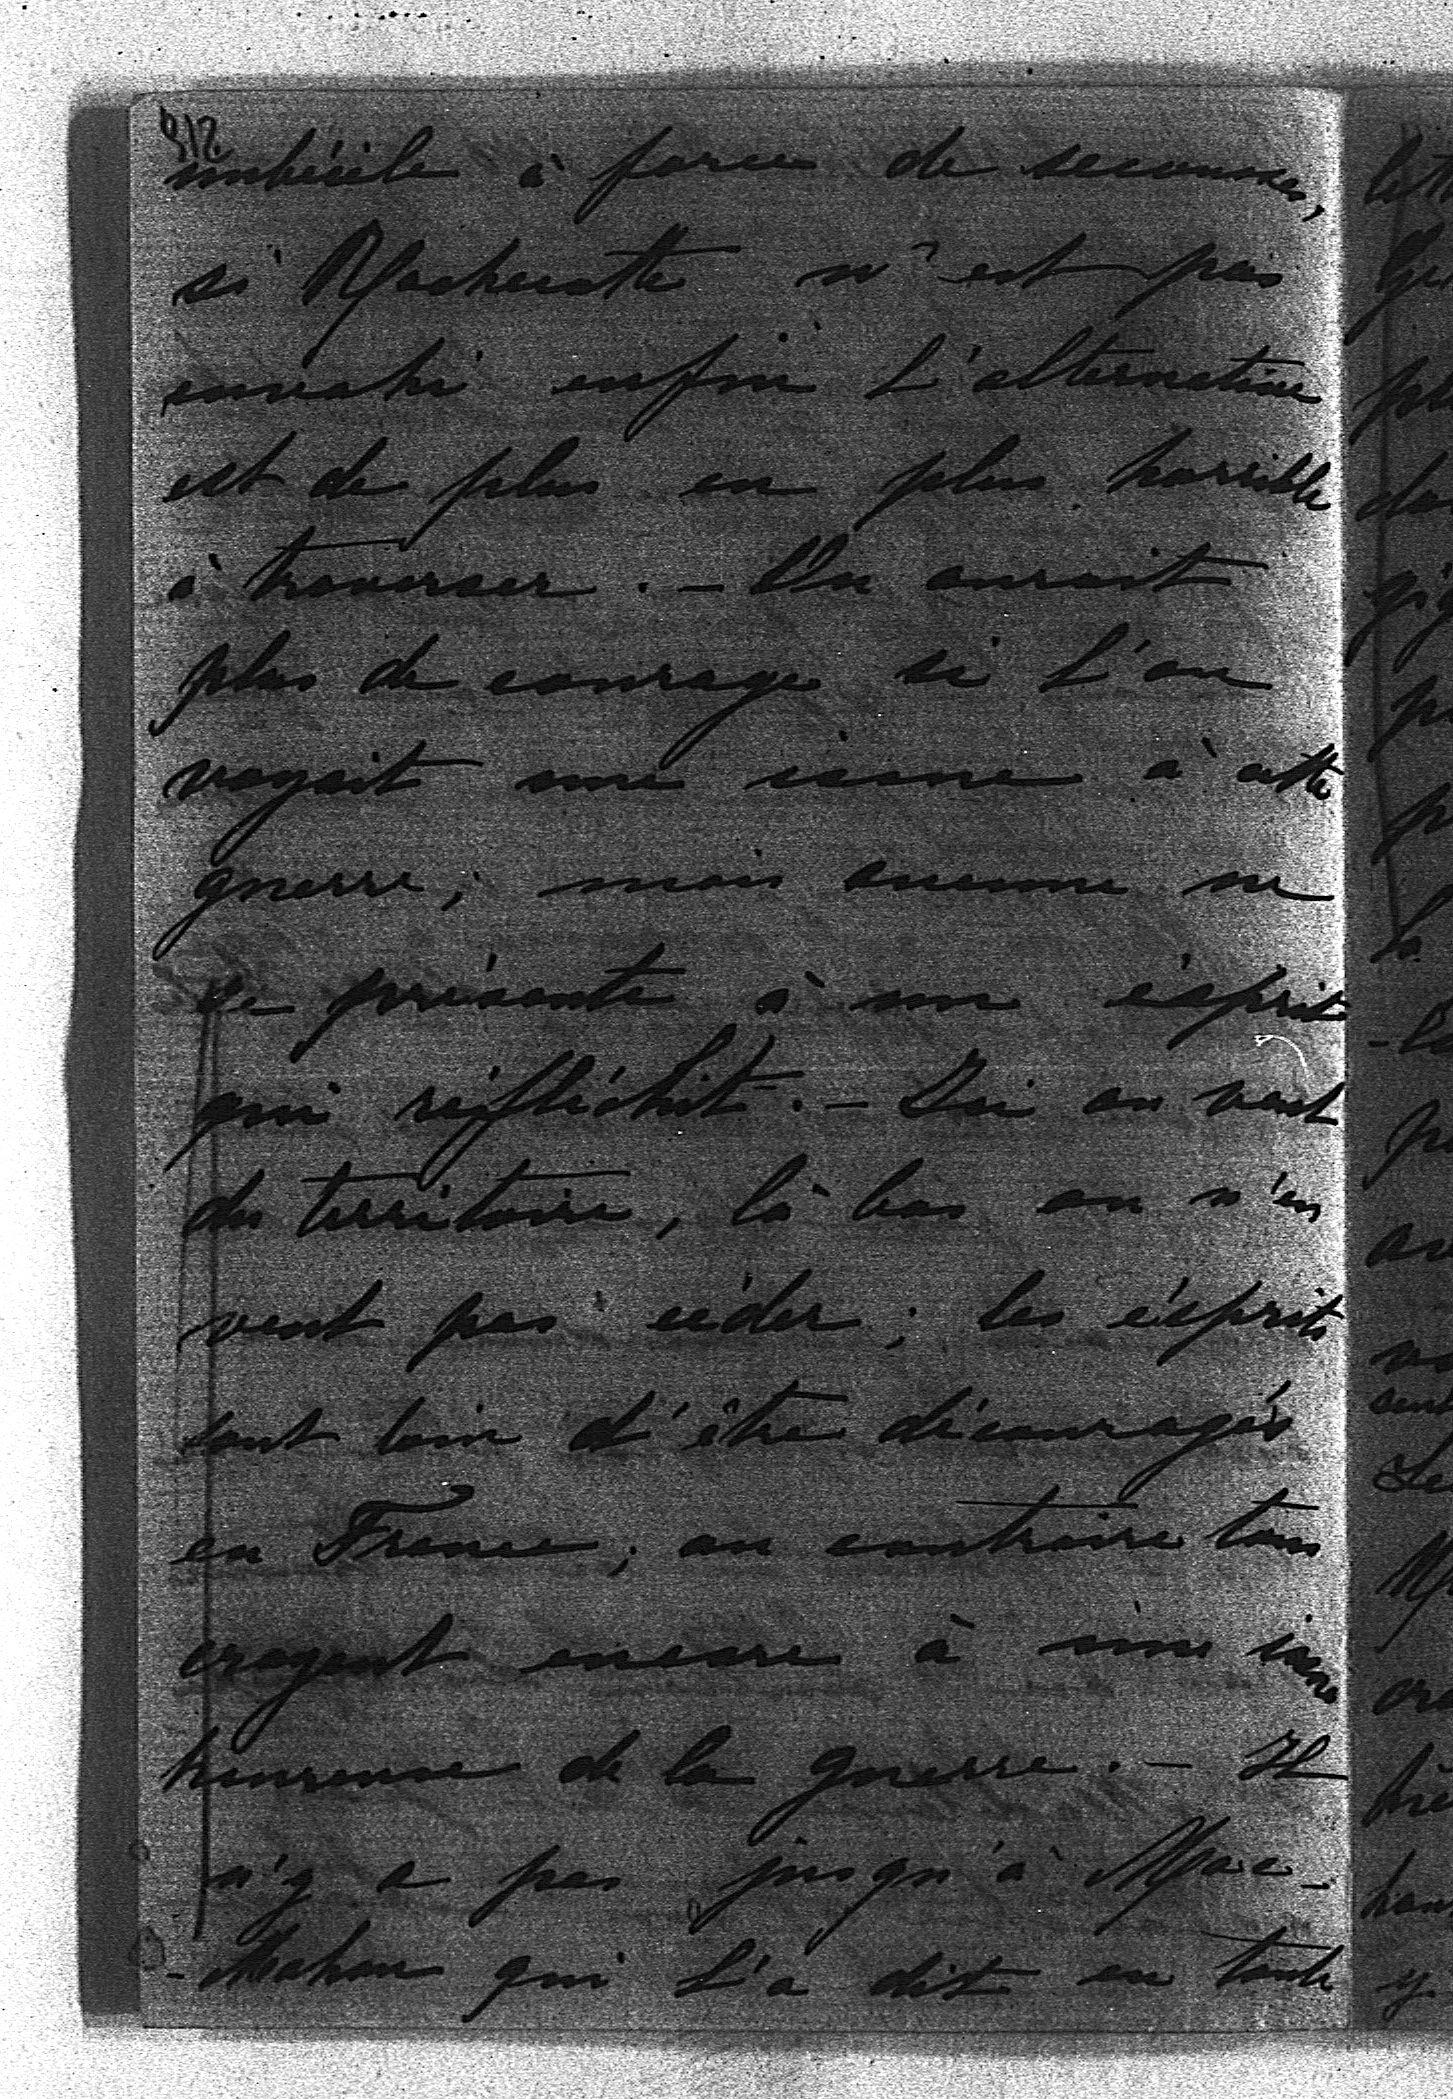 912
imbécile à force de secousses,
si Rochecotte n'est pas
envahi enfin L'alternative
est de plus en plus horrible
à traverser. - On aurait
plus de courage si L'on
voyait une issue à cette
guerre; mais aucune ne
se présente à un ésprit
qui réfléchit. - Ici on veut
du territoire, là bas on n'en
veut pas céder; les ésprits
sont loin d'être découragés
en France; au contraire tous
croyent encore à une issue
heureuse de la guerre. - Il
n'y a pas jusqu'à Mac-
-Mahon qui L'a dit en toute